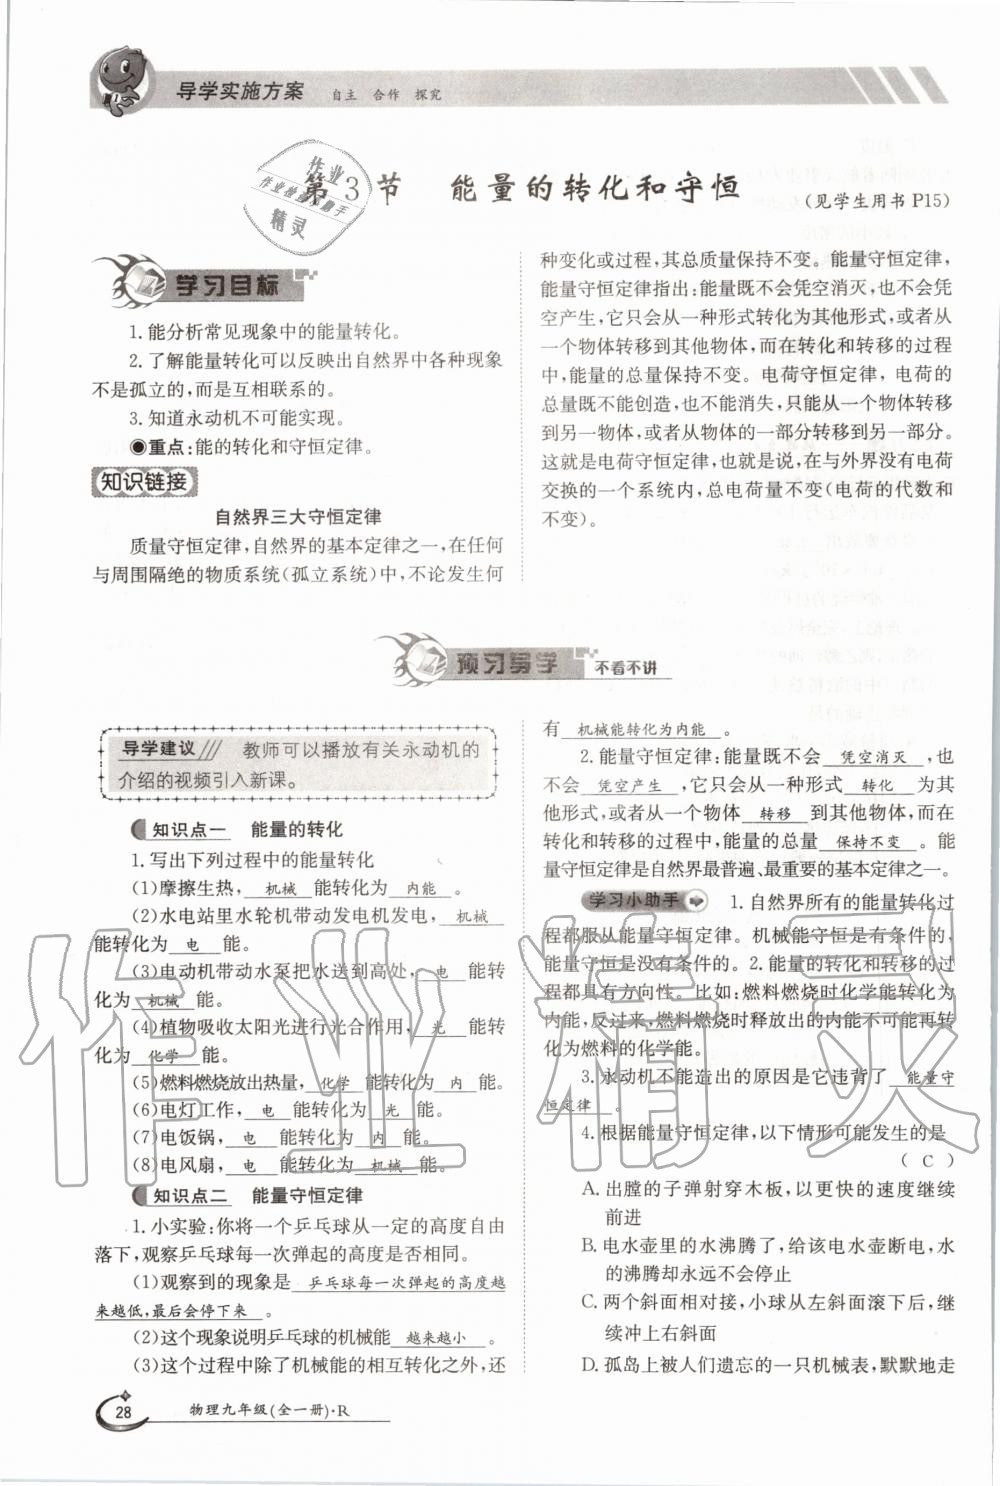 导学实施方案 自主 合作 探究
第3节 能量的转化和守恒
(见学生用书 P15)
学习目标
1.能分析常见现象中的能量转化。
2.了解能量转化可以反映出自然界中各种现象
不是孤立的,而是互相联系的。
3.知道永动机不可能实现。
◉重点:能的转化和守恒定律。
知识链接
自然界三大守恒定律
质量守恒定律,自然界的基本定律之一,在任何
与周围隔绝的物质系统(孤立系统)中,不论发生何
种变化或过程,其总质量保持不变。能量守恒定律,
能量守恒定律指出:能量既不会凭空消灭,也不会凭
空产生,它只会从一种形式转化为其他形式,或者从
一个物体转移到其他物体,而在转化和转移的过程
中,能量的总量保持不变。电荷守恒定律,电荷的
总量既不能创造,也不能消失,只能从一个物体转移
到另一物体,或者从物体的一部分转移到另一部分。
这就是电荷守恒定律,也就是说,在与外界没有电荷
交换的一个系统内,总电荷量不变(电荷的代数和
不变)。
预习导学 不看不讲
导学建议 教师可以播放有关永动机的
介绍的视频引入新课。
知识点一 能量的转化
1.写出下列过程中的能量转化
(1)摩擦生热, 机械 能转化为 内能 。
(2)水电站里水轮机带动发电机发电, 机械
能转化为 电 能。
(3)电动机带动水泵把水送到高处, 电 能转
化为 机械 能。
(4)植物吸收太阳光进行光合作用, 光 能转
化为 化学 能。
(5)燃料燃烧放出热量, 化学 能转化为 内 能。
(6)电灯工作, 电 能转化为 光 能。
(7)电饭锅, 电 能转化为 内 能。
(8)电风扇, 电 能转化为 机械 能。
知识点二 能量守恒定律
1.小实验:你将一个乒乓球从一定的高度自由
落下,观察乒乓球每一次弹起的高度是否相同。
(1)观察到的现象是 乒乓球每一次弹起的高度越
来越低,最后会停下来 。
(2)这个现象说明乒乓球的机械能 越来越小 。
(3)这个过程中除了机械能的相互转化之外,还
有 机械能转化为内能 。
2.能量守恒定律:能量既不会 凭空消灭 ,也
不会 凭空产生 ,它只会从一种形式 转化 为其
他形式,或者从一个物体 转移 到其他物体,而在
转化和转移的过程中,能量的总量 保持不变 。能
量守恒定律是自然界最普遍、最重要的基本定律之一。
学习小助手 1.自然界所有的能量转化过
程都服从能量守恒定律。机械能守恒是有条件的,
能量守恒是没有条件的。2.能量的转化和转移的过
程都具有方向性。比如:燃料燃烧时化学能转化为
内能,反过来,燃料燃烧时释放出的内能不可能再转
化为燃料的化学能。
3.永动机不能造出的原因是它违背了 能量守
恒定律 。
4.根据能量守恒定律,以下情形可能发生的是
( C )
A.出膛的子弹射穿木板,以更快的速度继续
前进
B.电水壶里的水沸腾了,给该电水壶断电,水
的沸腾却永远不会停止
C.两个斜面相对接,小球从左斜面滚下后,继
续冲上右斜面
D.孤岛上被人们遗忘的一只机械表,默默地走
28 物理九年级(全一册)·R
作业精灵